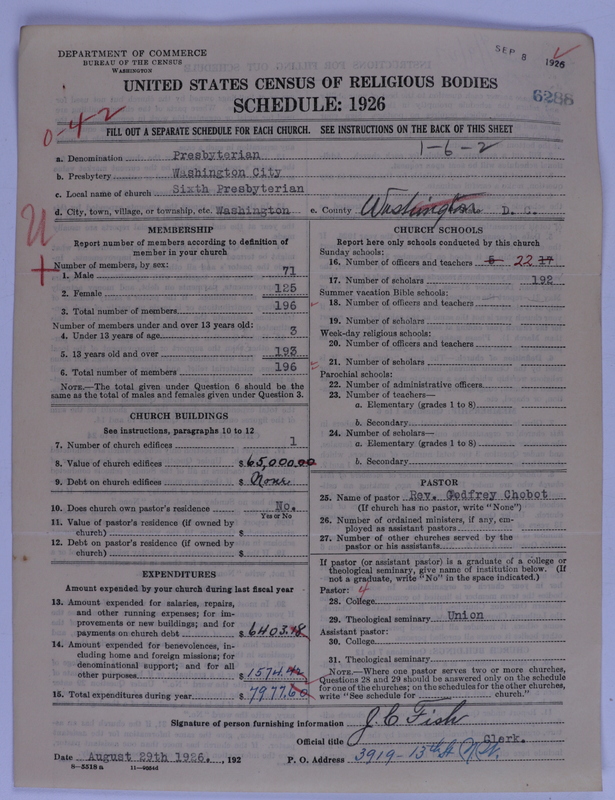 DEPARTMENT OF COMMERCE
BUREAU OF THE CENSUS
WASHINGTON
SEP 8 1926
UNITED STATES CENSUS OF RELIGIOUS BODIES
SCHEDULE: 1926
6288
0-4-2
FILL OUT A SEPARATE SCHEDULE FOR EACH CHURCH. SEE INSTRUCTIONS ON THE BACK OF THIS SHEET
1-6-2
a. Denomination Presbyterian
b. Presbytery Washington City
c. Local name of church Sixth Presbyterian
d. City, town, village, or township, etc. Washington e. County Washington D. C.
U
MEMBERSHIP
Report number of members according to definition of
member in your church
Number of members, by sex:
1. Male 71
2. Female 125
3. Total number of members 196
Number of members under and over 13 years old:
4. Under 13 years of age 3
5. 13 years old and over 193
6. Total number of members 196
NOTE.—The total given under Question 6 should be
the same as the total of males and females given under Question 3.
CHURCH BUILDINGS
See instructions, paragraphs 10 to 12
7. Number of church edifices 1
8. Value of church edifices $65,000.00
9. Debt on church edifices $ None
10. Does church own pastor's residence No.
Yes or No
11. Value of pastor's residence (if owned by
church) $
12. Debt on pastor's residence (if owned by
church) $
EXPENDITURES
Amount expended by your church during last fiscal year
13. Amount expended for salaries, repairs,
and other running expenses; for im-
provements or new buildings; and for
payments on church debt $6403.18
14. Amount expended for benevolences, in-
cluding home and foreign missions; for
denominational support; and for all
other purposes $1574.42
15. Total expenditures during year $7977.60
CHURCH SCHOOLS
Report here only schools conducted by this church
Sunday schools:
16. Number of officers and teachers 5 22 17
17. Number of scholars 192
Summer vacation Bible schools:
18. Number of officers and teachers
19. Number of scholars
Week-day religious schools:
20. Number of officers and teachers
21. Number of scholars
Parochial schools:
22. Number of administrative officers
23. Number of teachers—
a. Elementary (grades 1 to 8)
b. Secondary
24. Number of scholars—
a. Elementary (grades 1 to 8)
b. Secondary
PASTOR
25. Name of pastor Rev. Godfrey Chobot
(If church has no pastor, write "None")
26. Number of ordained ministers, if any, em-
ployed as assistant pastors
27. Number of other churches served by the
pastor or his assistants
If pastor (or assistant pastor) is a graduate of a college or
theological seminary, give name of institution below. (If
not a graduate, write "No" in the space indicated.)
Pastor: 4
28. College
29. Theological seminary Union
Assistant pastor:
30. College
31. Theological seminary
NOTE.—Where one pastor serves two or more churches,
Questions 28 and 29 should be answered only on the schedule
for one of the churches; on the schedules for the other churches,
write "See schedule for church."
Signature of person furnishing information J. C. Fish
Official title Clerk.
Date August 29th 1926. , 192 P. O. Address 3919-13th St N.W.
8-5518 a 11-9504d